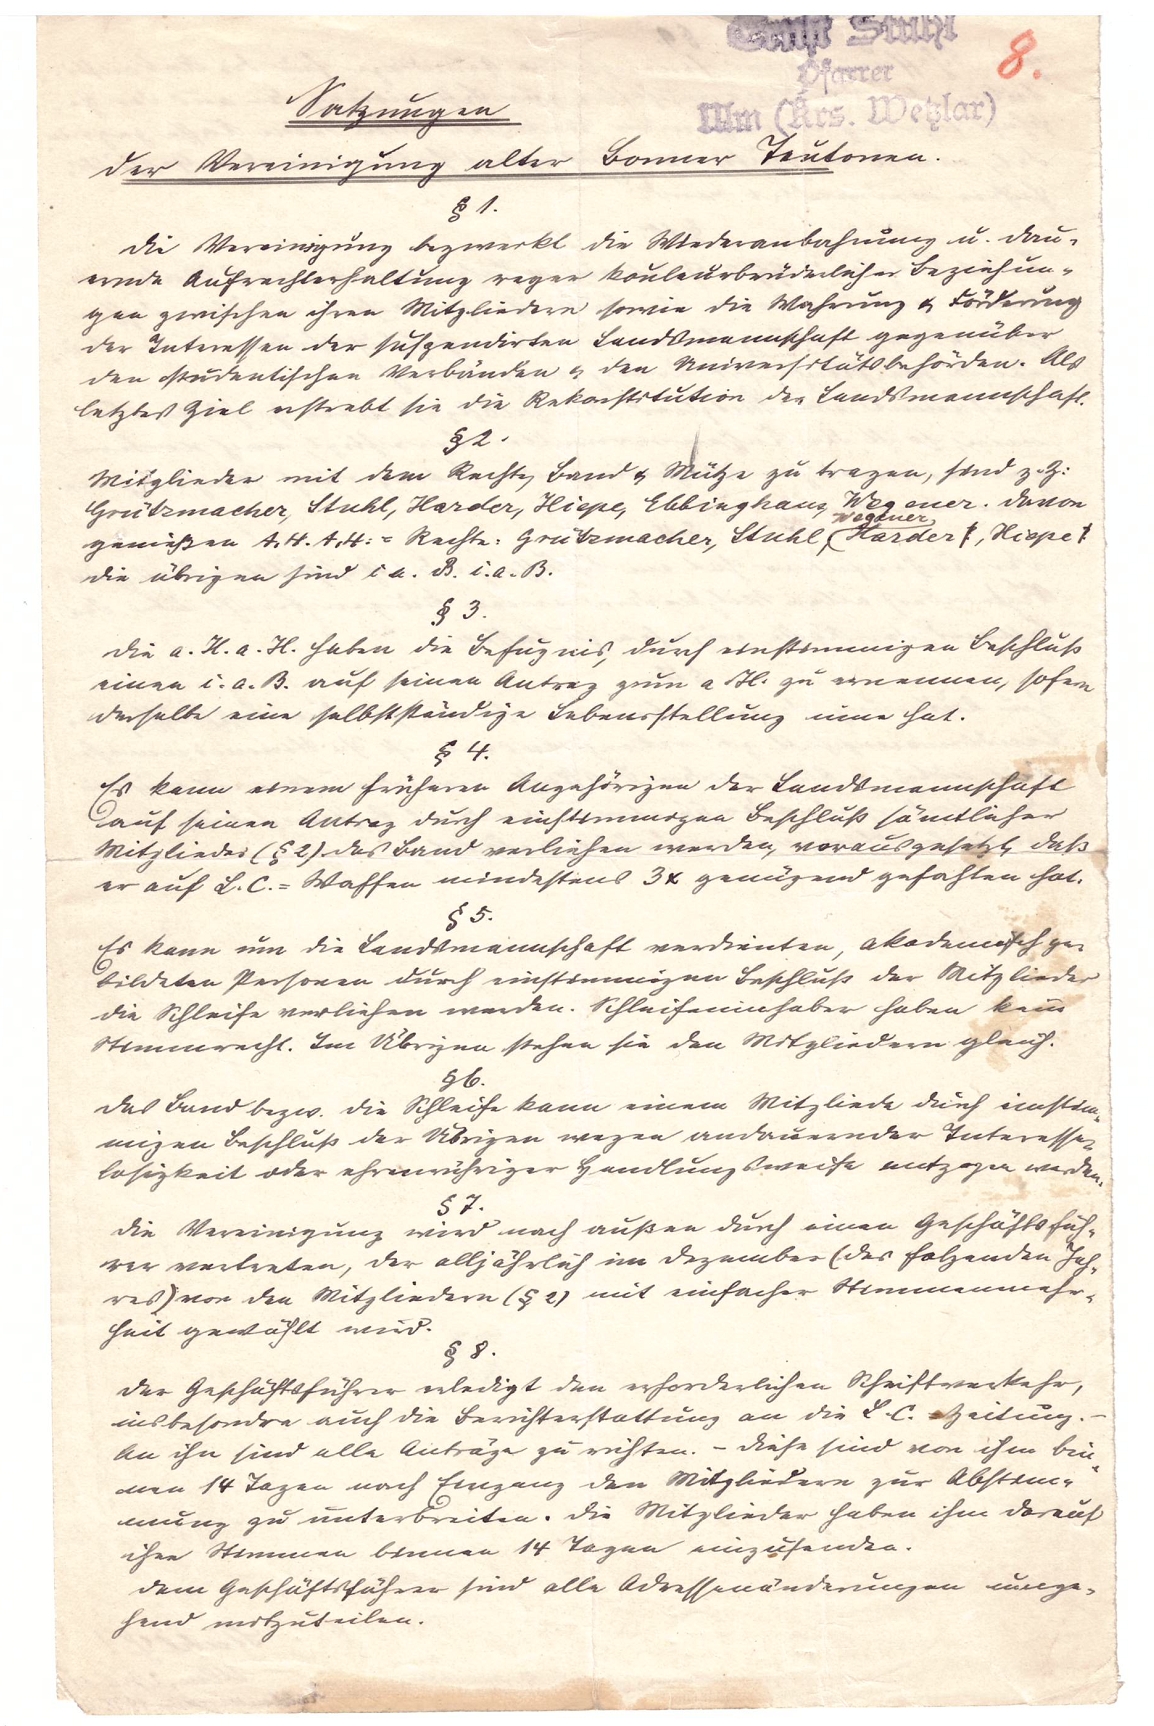 Ernst Stuhl
Pfarrer
Ulm (Krs. Wetzlar)
8.
Satzungen
der Vereinigung alter Bonner Teutonen.
§ 1.
Die Vereinigung bezweckt die Wiederanbahnung u. dau-
ernde Aufrechterhaltung reger kouleurbrüderlicher Beziehun-
gen zwischen ihren Mitgliedern sowie die Wahrung & Förderung
der Interessen der suspendirten Landsmannschaft gegenüber
den studentischen Verbänden & den Universitätsbehörden. Als
letztes Ziel erstrebt sie die Rekonstitution der Landsmannschaft.
§ 2.
Mitglieder mit dem Rechte, Band & Mütze zu tragen, sind z. Z:
Grützmacher, Stuhl, Harder, Hiepe, Ebbinghaus, Wegener. Davon
Wegener,
genießen A. H. A. H: = Rechte: Grützmacher, Stuhl, (Harder †, Hiepe †
die übrigen sind i. a. B. i. a. B.
§ 3.
Die a. H. a. H. haben die Befugnis, durch einstimmigen Beschluß
einen i. a. B. auf seinen Antrag zum a. H. zu ernennen, sofern
derselbe eine selbstständige Lebensstellung inne hat.
§ 4.
Es kann einem früheren Angehörigen der Landsmannschaft
auf seinen Antrag durch einstimmigen Beschluß sämtlicher
Mitglieder (§ 2) das Band verliehen werden, vorausgesetzt, daß
er auf L. C. = Waffen mindestens 3 x genügend gefochten hat.
§ 5.
Es kann um die Landsmannschaft verdienten, akademisch ge-
bildeten Personen durch einstimmigen Beschluß der Mitglieder
die Schleife verliehen werden. Schleifeninhaber haben kein
Stimmrecht. Im Übrigen stehen sie den Mitgliedern gleich.
§ 6.
Das Band bezw. die Schleife kann einem Mitgliede durch einstim-
migen Beschluß der Übrigen wegen andauernder Interesse-
losigkeit oder ehrenrühriger Handlungsweise entzogen werden.
§ 7.
Die Vereinigung wird nach außen durch einen Geschäftsfüh-
rer vertreten, der alljährlich im Dezember (des folgenden Jah-
res) von den Mitgliedern (§ 2) mit einfacher Stimmenmehr-
heit gewählt wird.
§ 8.
Der Geschäftsführer erledigt den erforderlichen Schriftverkehr,
insbesondre auch die Berichterstattung an die L. C. = Zeitung. -
An ihn sind alle Anträge zu richten. - Diese sind von ihm bin-
nen 14 Tagen nach Eingang den Mitgliedern zur Abstim-
mung zu unterbreiten. Die Mitglieder haben ihm darauf
ihre Stimmen binnen 14 Tagen einzusenden.
Dem Geschäftsführer sind alle Adressenänderungen umge-
hend mitzuteilen.